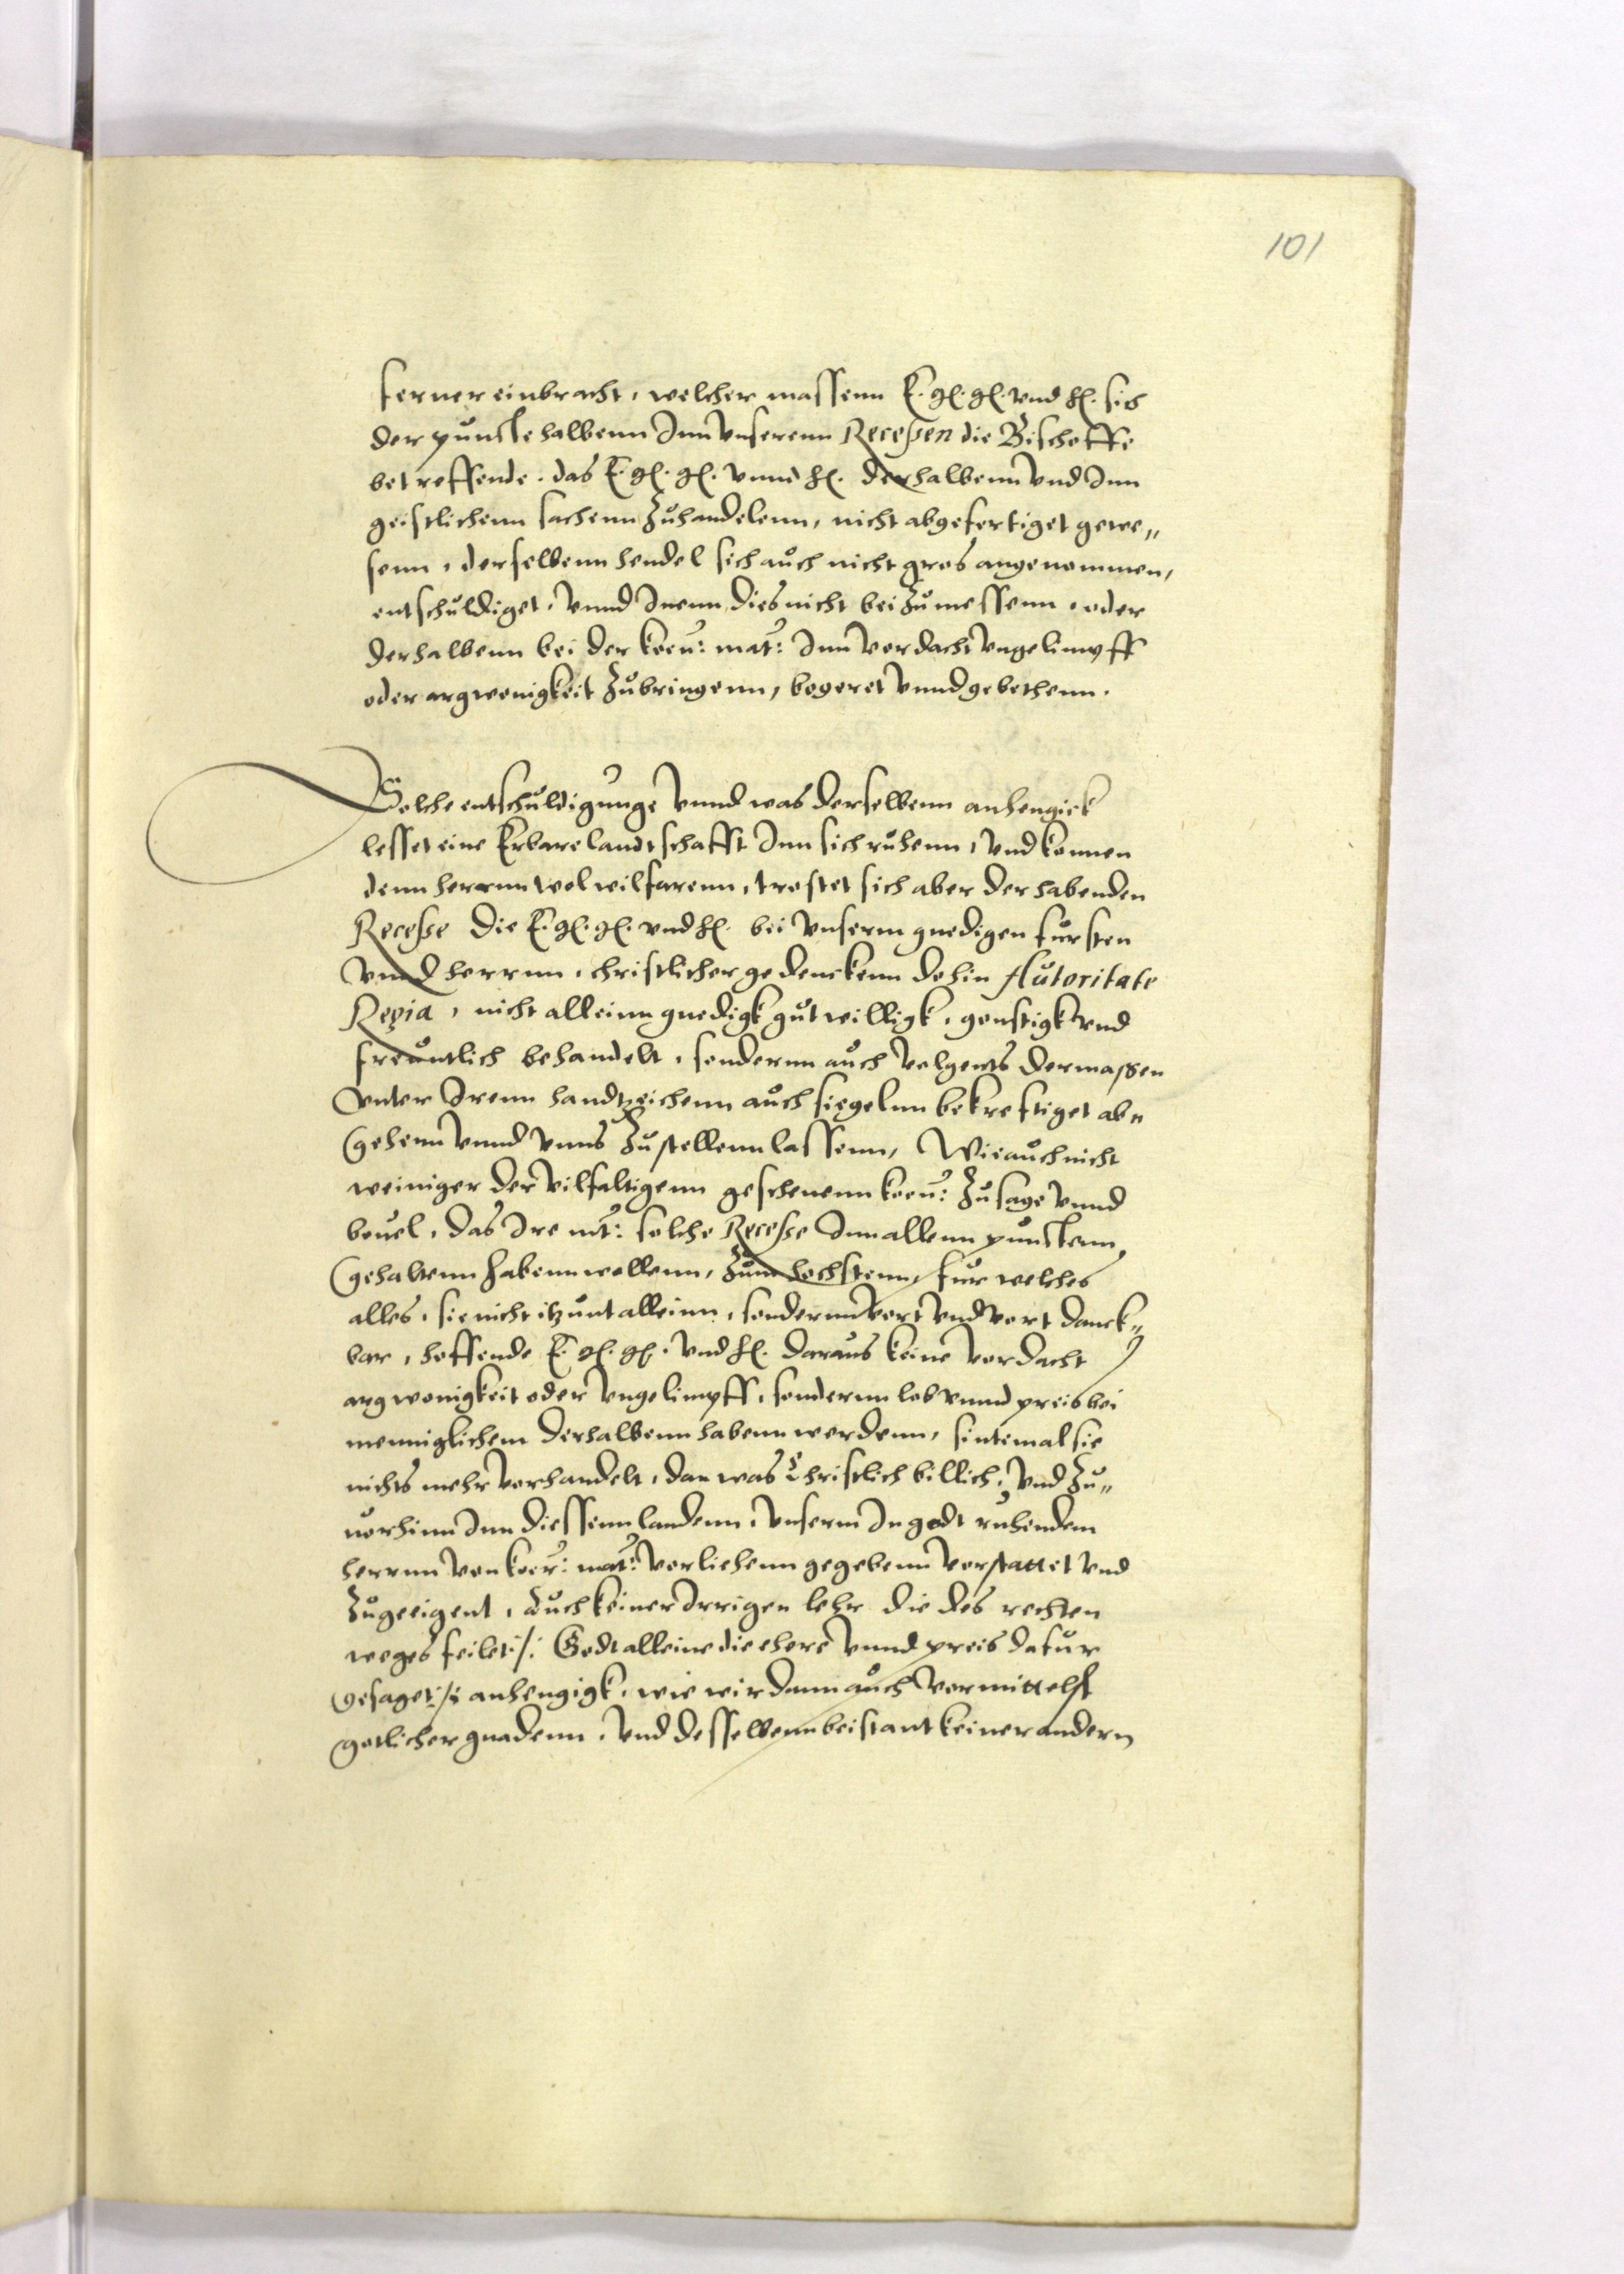 101
ferner einbracht, welcher massenn E. gl. gl. vnd hl. sich
der punckte halbenn Inn vnserenn Recessen die Bischoffe
betreffende. das E. gl. gl. vnnd hl. derhalbenn vnd Inn
geistlichenn sachenn Zuhandelenn, nicht abgefertiget gewe„
senn, derselbenn hendel sich auch nicht gros angenommen,
entschuldiget, vnnd Inenn dies nicht bei Zumessenn, oder
derhalbenn bei der koeu: mat: Inn vordacht vngelimpff
oder argwenigkeit Zubringenn, begeret vnnd gebethenn.
Solche entschuldigunge vnnd was derselbenn anhengick
lesset eine Erbare landtschafft Inn sich ruhenn, vnd konnen
denn herrnn wol wilfarenn, trostet sich aber der habenden
Recesse die E. gl. gl. vnd hl. bei vnserm gnedigen fursten
vnnd herrnn, christlicher gedenckenn dohin Autoritate
Regia, nicht alleinn gnedigk gutwilligk, gonstigk vnd
freuntlich behandelt, sondernn auch volgents dermassen
vnter Irenn handtzeichenn auch siegelnn bekreftiget ab„
gehenn vnnd vnns Zustellenn lassenn, Wie auch nicht
weiniger der vilfaltigenn geschenenn koeu: Zusage vnnd
beuel, das Ire mt: solche Recesse Inn allenn punckenn,
gehaltenn habenn wollenn, Zum hochstenn, fur welches
alles, sie nicht itzunt alleinn, sondernn vort vnd vort danck„
bar, hoffende E. gl. gl. vnd hl. daraus keine vordacht
argwonigkeit oder vngelimpff, sondernn lob vnnd preis bei
menniglichem derhalbenn habenn werdenn, sintemal sie
nichts mehr vorhandelt, dan was Christlich billich, vnd Zu„
uorhinn Inn diessenn landenn, vnserm In godt ruhendem
herrnn von koer: mat: vorliehenn gegebenn vorstattet vnd
Zugeeigent, Auch keiner Irrigen lehr die des rechten
weges feilet:/: Godt alleine die ehere vnnd preis dafur
gesaget:/: anhengigk, wie wir dann auch vormittelst
gotlicher gnadenn, vnd desselbenn beistant keiner andern